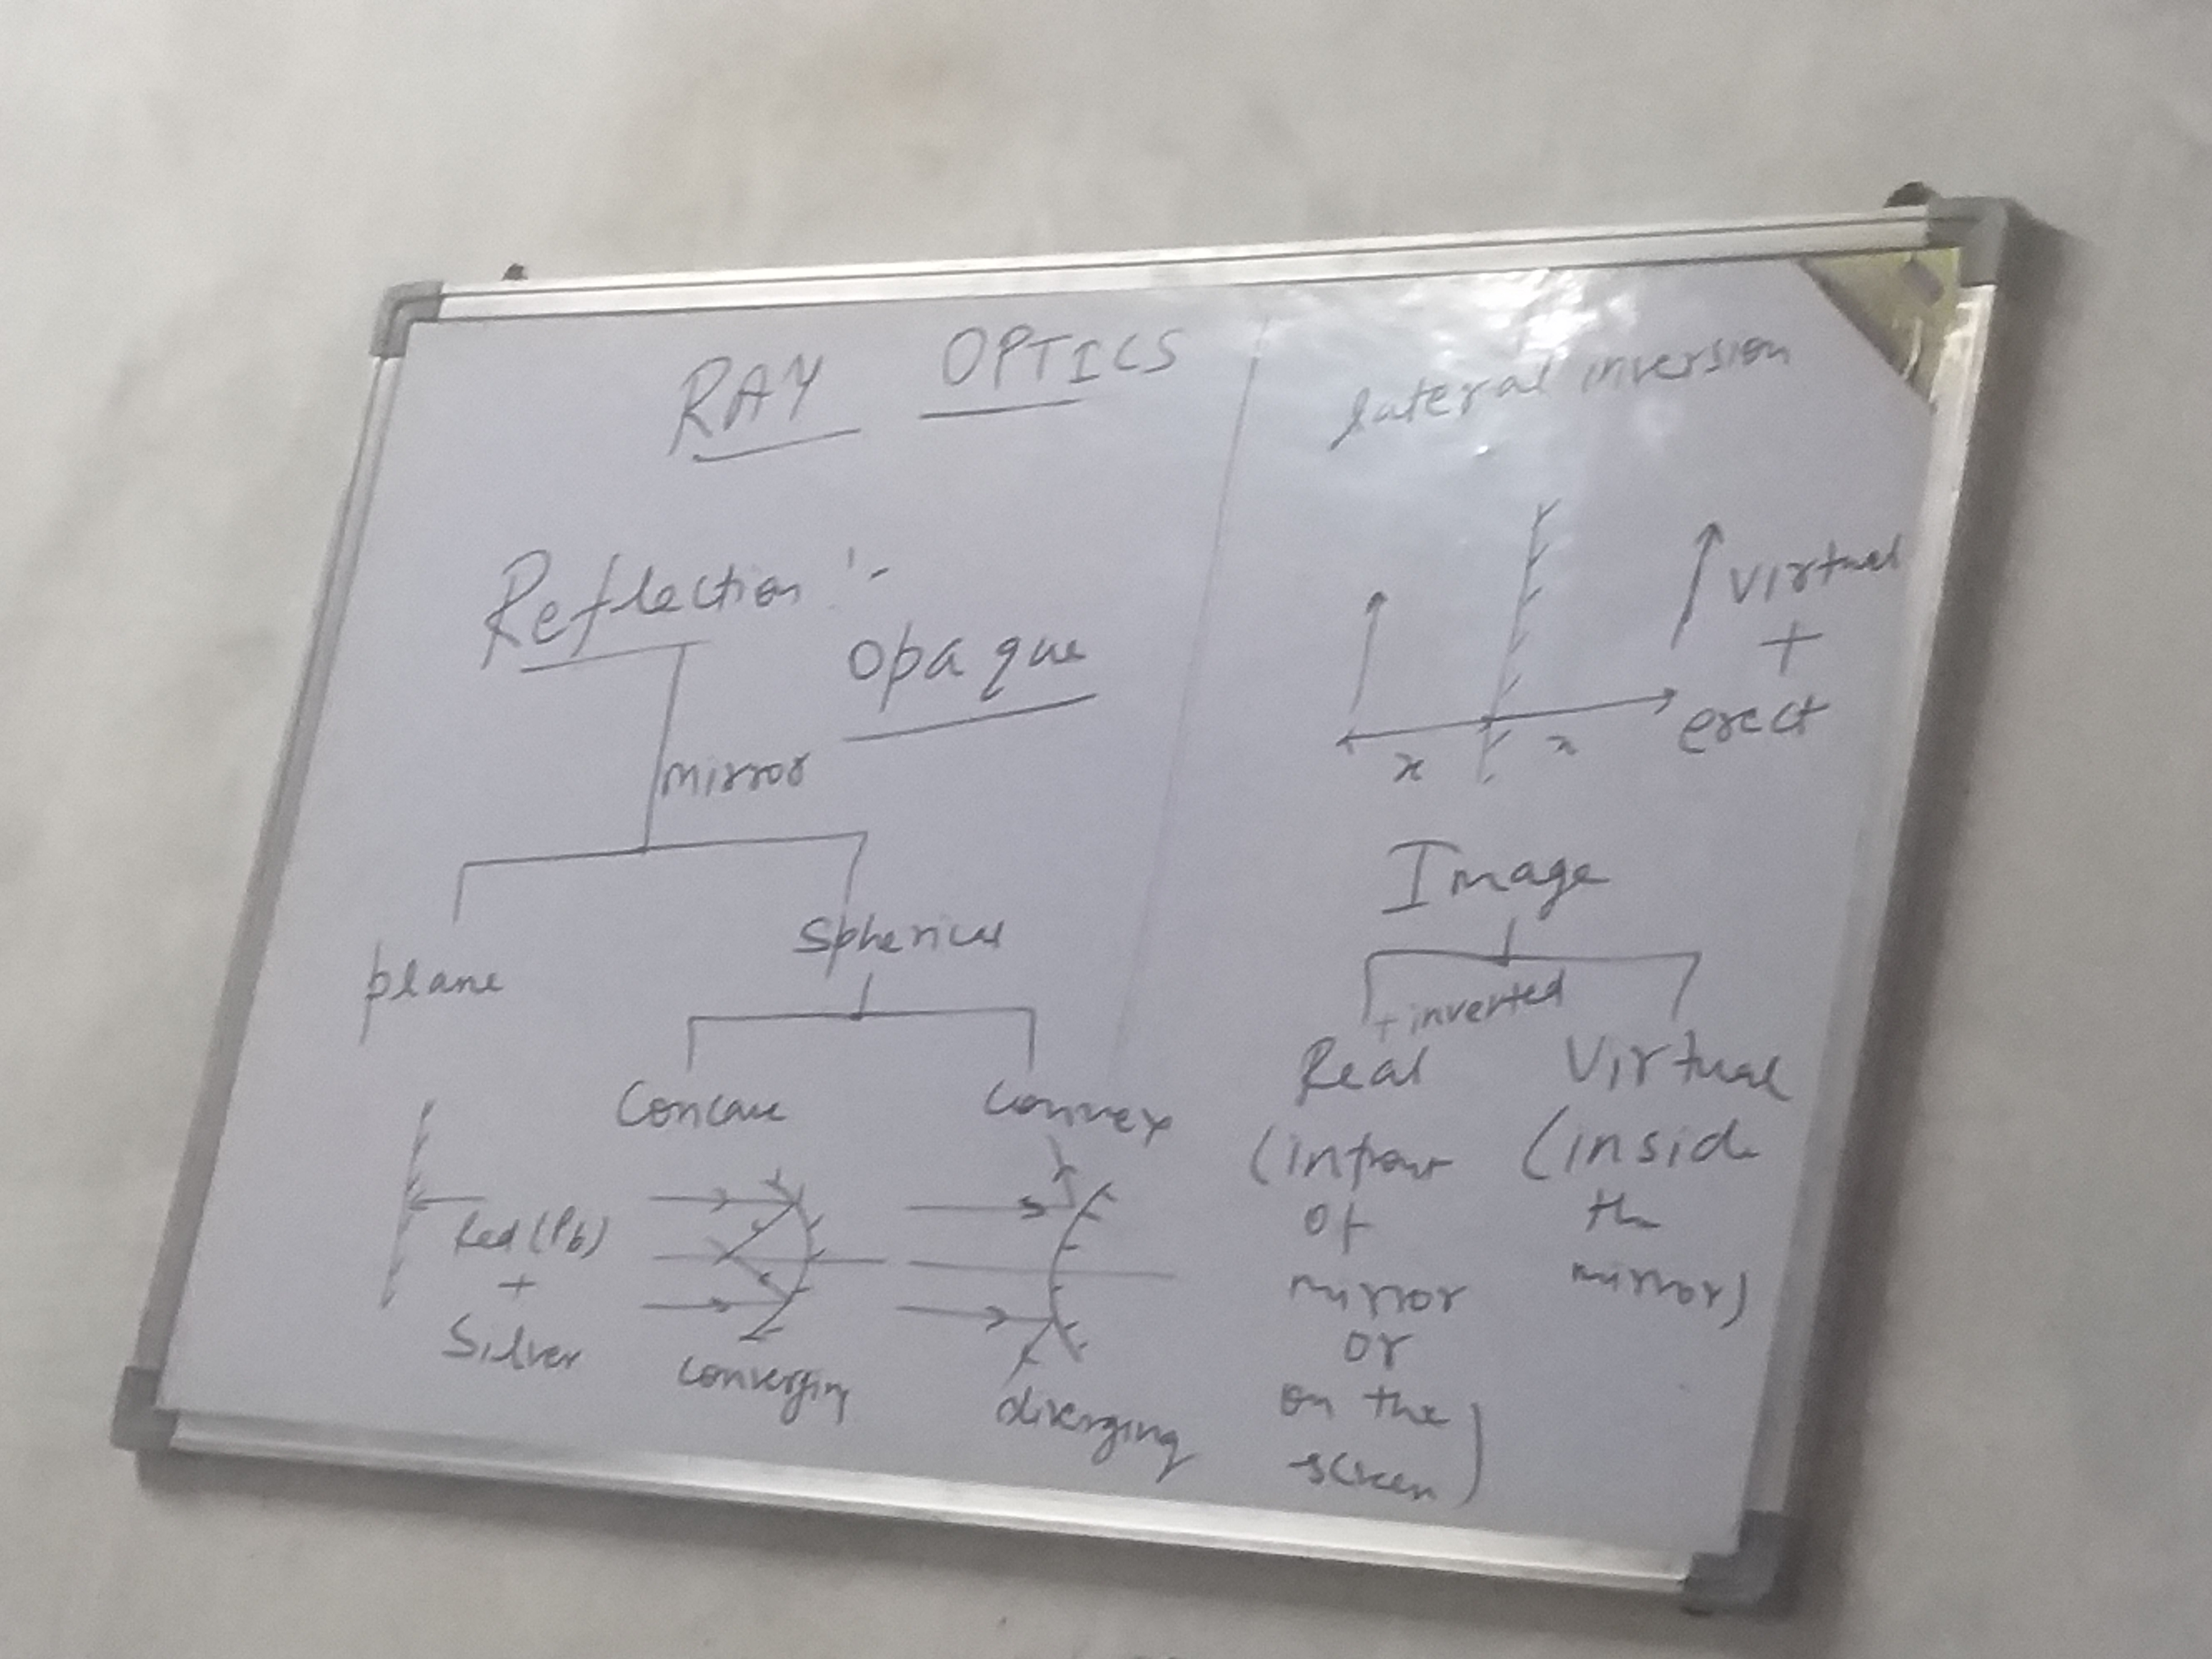 RAY OPTICS
Reflection :-
opaque
mirror
plane
spherical
Concave
Convex
Led (Pb)
+
Silver
converging
diverging
lateral inversion
virtual
+
erect
x
x
Image
+ inverted
Real
(infront
of
mirror
or
on the
screen)
Virtual
(inside
the
mirror)